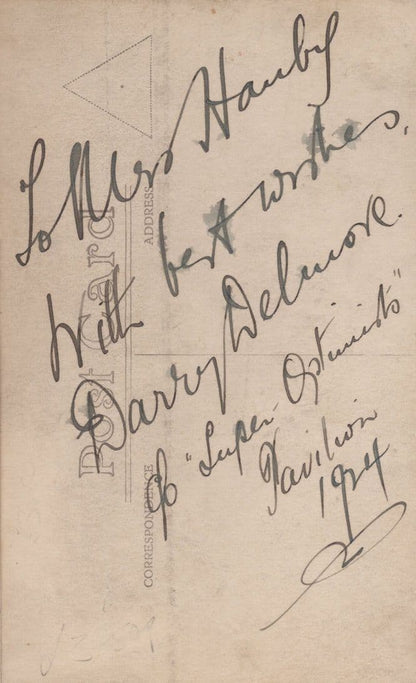 To Miss Hauby
With best wishes.
Barry Delmore.
c/o "Super-Optimists"
Pavilion
1924
Post Card
ADDRESS
CORRESPONDENCE